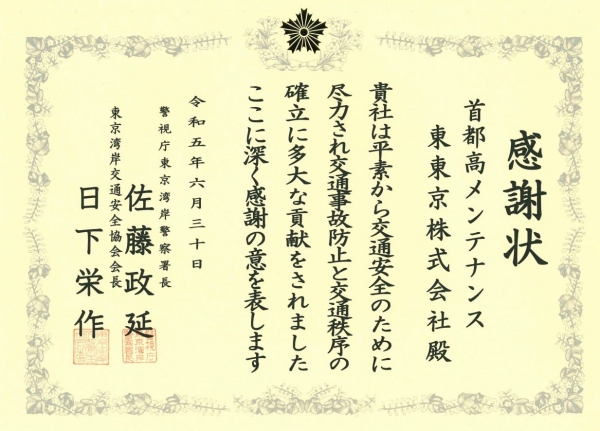 感謝状
首都高メンテナンス
東東京株式会社殿
貴社は平素から交通安全のために
尽力され交通事故防止と交通秩序の
確立に多大な貢献をされました
ここに深く感謝の意を表します
令和五年六月三十日
警視庁東京湾岸警察署長
佐藤政延
東京湾岸交通安全協会会長
日下栄作